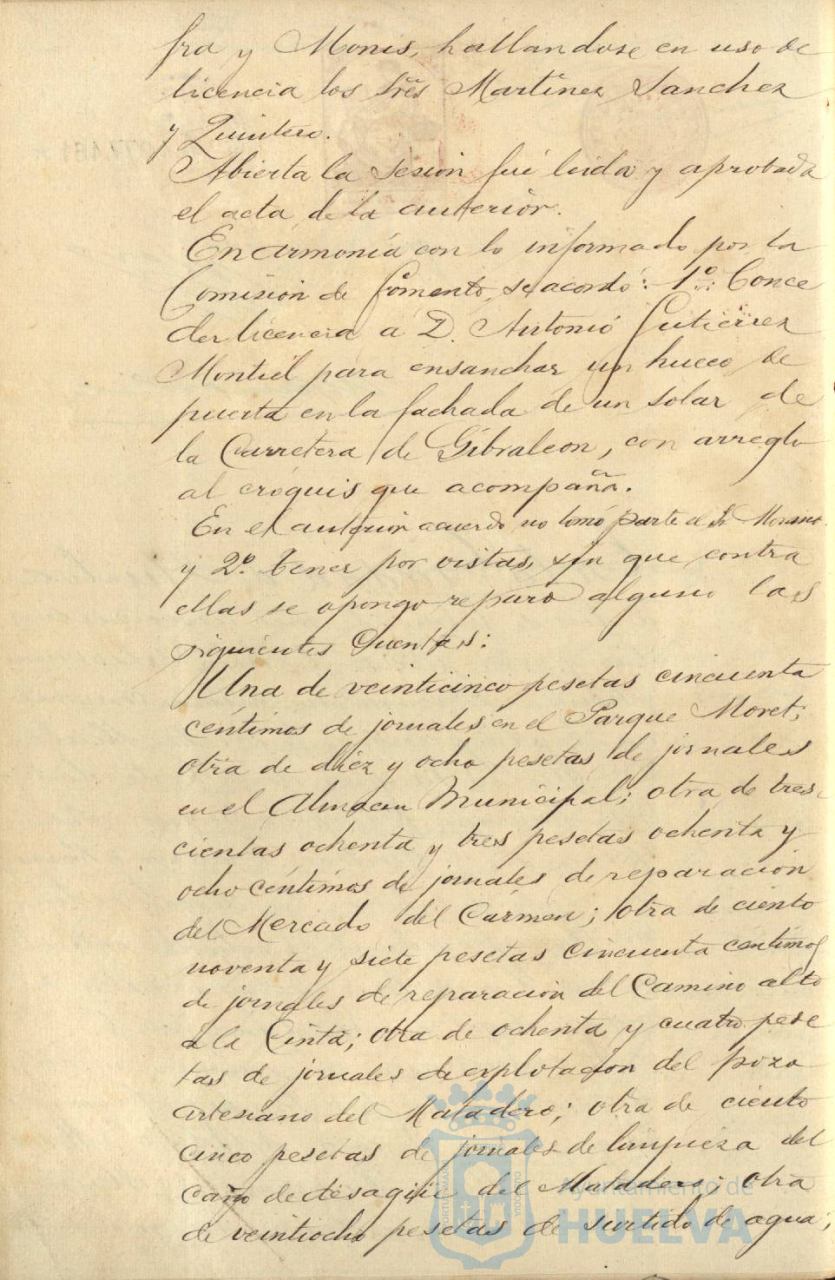 fra y Mones, hallandose en uso de
licencia los Sres Martinez Sanchez
y Quintero.
Abierta la sesion fué leida y aprobada
el acta de la anterior.
En armonía con lo informado por la
Comision de Fomento, se acordó: 1º Conce
der licencia a D. Antonio Gutierrez
Montiel para ensanchar un hueco de
puerta en la fachada de un solar de
la Carretera de Gibraleon, con arreglo
al cróquis que acompaña.
En el anterior acuerdo no tomó parte el Sr
y 2º tener por vistas, sin que contra
ellas se oponga reparo alguno las
siguientes Cuentas:
Una de veinticinco pesetas cincuenta
céntimos de jornales en el Parque Moret;
otra de diez y ocho pesetas de jornales
en el Almacen Municipal; otra de tres-
cientas ochenta y tres pesetas ochenta y
ocho céntimos de jornales de reparacion
del Mercado del Cármen; otra de ciento
noventa y siete pesetas cincuenta centimos
de jornales de reparacion del Camino alto
a la Cinta; otra de ochenta y cuatro pese
tas de jornales de explotacion del pozo
artesiano del Matadero; otra de ciento
cinco pesetas de jornales de limpieza del
caño de desagüe del Matadero; otra
de veintiocho pesetas de surtido de agua;
Ayuntamiento de
HUELVA